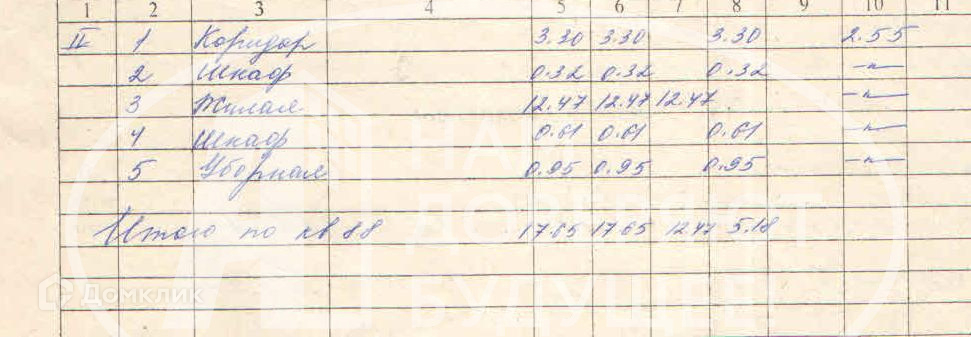 1 2 3 4 5 6 7 8 9 10 11
II 1 Коридор 3.30 3.30 3.30 2.55
2 Шкаф 0.32 0.32 0.32 —"—
3 Жилая 12.47 12.47 12.47 —"—
4 Шкаф 0.61 0.61 0.61 —"—
5 Уборная 0.95 0.95 0.95 —"—
Итого по кв 88 17.65 17.65 12.47 5.18
Домклик
НАМ
ДОВЕРЯЮТ
БУДУЩЕЕ